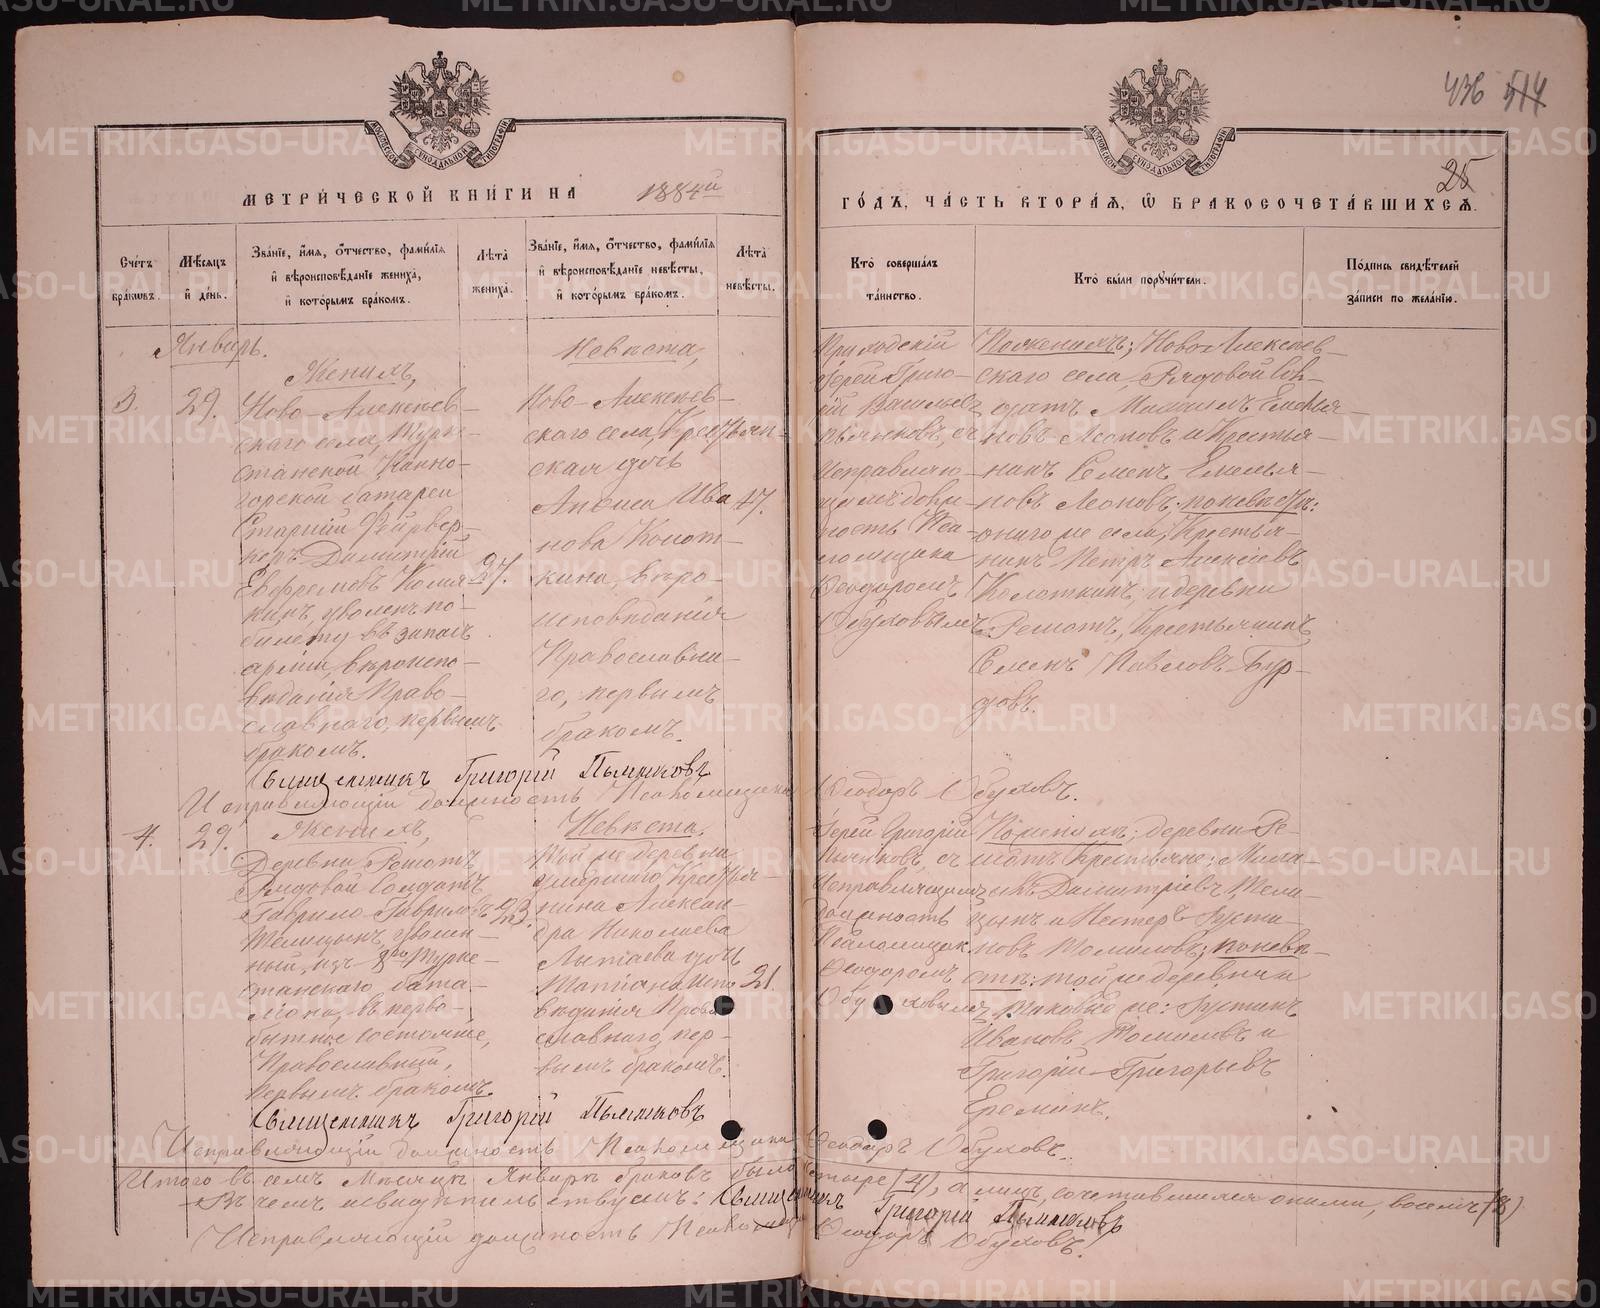 436 514
25
МЕТРИЧЕСКОЙ КНИГИ НА 1884й
ГОДЪ, ЧАСТЬ ВТОРАЯ, Ѿ БРАКОСОЧЕТАВШИХСЯ.
Счетъ браковъ.
Мѣсяцъ и день.
Званіе, имя, отчество, фамилія и вѣроисповѣданіе жениха, и которымъ бракомъ.
Лѣта жениха.
Званіе, имя, отчество, фамилія и вѣроисповѣданіе невѣсты, и которымъ бракомъ.
Лѣта невѣсты.
Кто совершалъ таинство.
Кто были поручители.
Подпись свидѣтелей записи по желанію.
Январь.
3. 29.
Женихъ,
Ново-Алексѣев-
скаго села, Турке-
станской Конно-
горской батареи
Старшій Фейервер-
керъ Димитрій
Евфремовъ
уволенъ по
билету въ запасъ
арміи, вѣроиспо-
вѣданія Право-
славнаго, первымъ
бракомъ.
27.
Невѣста,
Ново-Алексѣев-
скаго села, Крестьян-
ская дочь
Анѳиса Ива
нова Колот-
кина, вѣро-
исповѣданія
Православна-
го, первымъ
бракомъ.
17.
Приходскій
Іерей Григо-
рій Васильев
Пьянковъ, съ
Исправляю-
щимъ долж-
ность Псаломщика
Ѳеодоромъ
Обуховымъ.
По женихѣ; Ново Алексѣев-
скаго села, Рядовой Сол-
датъ Михаилъ Емелья-
новъ Леоновъ и Крестья-
нинъ Семенъ Емелья-
новъ Леоновъ; по невѣстѣ:
онаго же села, Крестья-
нинъ Петръ Алексѣевъ
Колоткинъ, и деревни
Решотъ, Крестьянинъ
Семенъ Павловъ Бур-
довъ.
Священникъ Григорій Пьянковъ
Исправляющій должность Псаломщика Ѳеодоръ Обуховъ.
4. 29.
Женихъ,
Деревни Решотъ
Рядовой Солдатъ
Гаврило Гавриловъ
Телицынъ, уволен-
ный изъ Турке-
станскаго бата-
ліона, въ перво-
бытное состояніе,
Православный,
первымъ бракомъ.
23.
Невѣста.
Той же деревни
умершаго Крестья-
нина Алексан-
дра Николаева
дочь
Татіана, испо-
вѣданія Право-
славнаго, пер-
вымъ бракомъ.
21.
Іерей Григорій
Пьянковъ, съ
Исправляющимъ
должность
Псаломщик
Ѳеодоромъ
Обуховымъ.
По женихѣ; деревни Ре-
шотъ Крестьяне: Миха-
илъ Димитріевъ Тели-
цынъ и Нестеръ Густи-
новъ Томиловъ; по невѣ-
стѣ: той же деревни
таковые же: Густинъ
Ивановъ Томиловъ и
Григорій Григорьевъ
Ереминъ.
Священникъ Григорій Пьянковъ
Исправляющій должность Псаломщика Ѳеодоръ Обуховъ.
Итого въ семъ Мѣсяцѣ Январѣ браковъ было четыре (4), а лицъ, сочетавшихся оными, восемь (8)
Въ чемъ и свидѣтельствуемъ: Священникъ Григорій Пьянковъ
Исправляющій должность Псаломщика Ѳеодоръ Обуховъ.